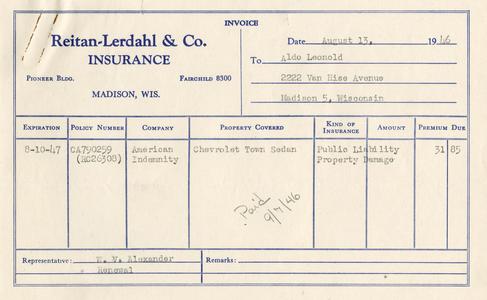 INVOICE
Reitan-Lerdahl & Co.
INSURANCE
PIONEER BLDG. FAIRCHILD 8300
MADISON, WIS.
Date August 13, 1946
To Aldo Leopold
2222 Van Hise Avenue
Madison 5, Wisconsin
EXPIRATION POLICY NUMBER COMPANY PROPERTY COVERED KIND OF INSURANCE AMOUNT PREMIUM DUE
8-10-47 CA790259 American Chevrolet Town Sedan Public Liability 31 85
(RC26308) Indemnity Property Damage
Paid
9/7/46
Representative: W. V. Alexander Remarks:
Renewal